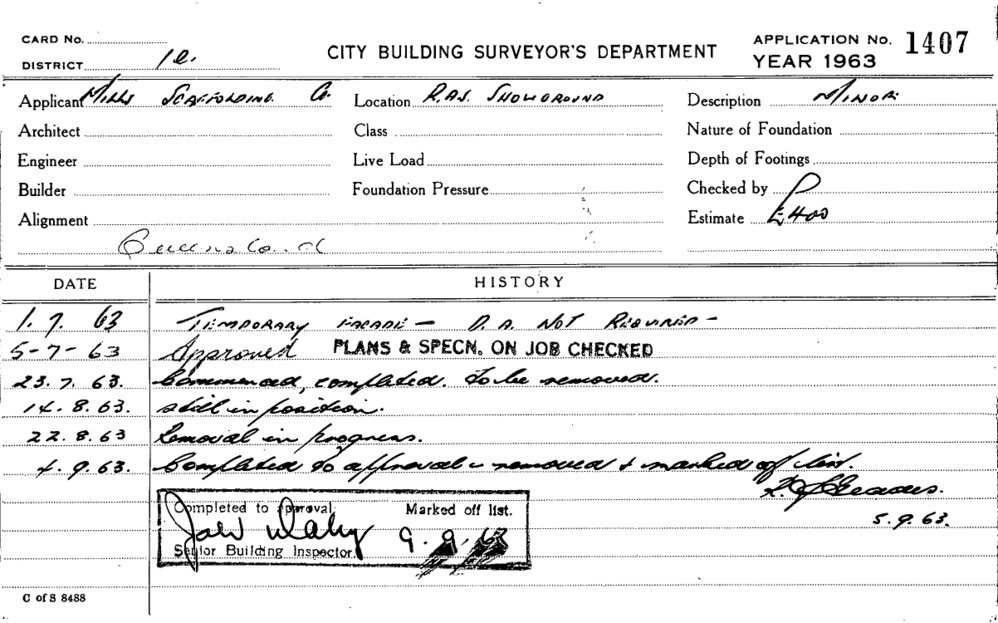 CARD No.
DISTRICT 1e.
CITY BUILDING SURVEYOR'S DEPARTMENT
APPLICATION No. 1407
YEAR 1963
Applicant Mills Scaffolding Co. Location R.A.S. Showground Description Minor
Architect Class Nature of Foundation
Engineer Live Load Depth of Footings
Builder Foundation Pressure Checked by
Alignment Estimate £400
DATE HISTORY
1.7.63 Temporary facade - D.A. not required -
5-7-63 Approved PLANS & SPECN. ON JOB CHECKED
23.7.63. Commenced, completed. To be removed.
14.8.63. still in position.
22.8.63 Removal in progress.
4.9.63. Completed to approval - removed & marked off list.
5.9.63.
Completed to approval. Marked off list.
9.9.63
Senior Building Inspector.
C of S 8488